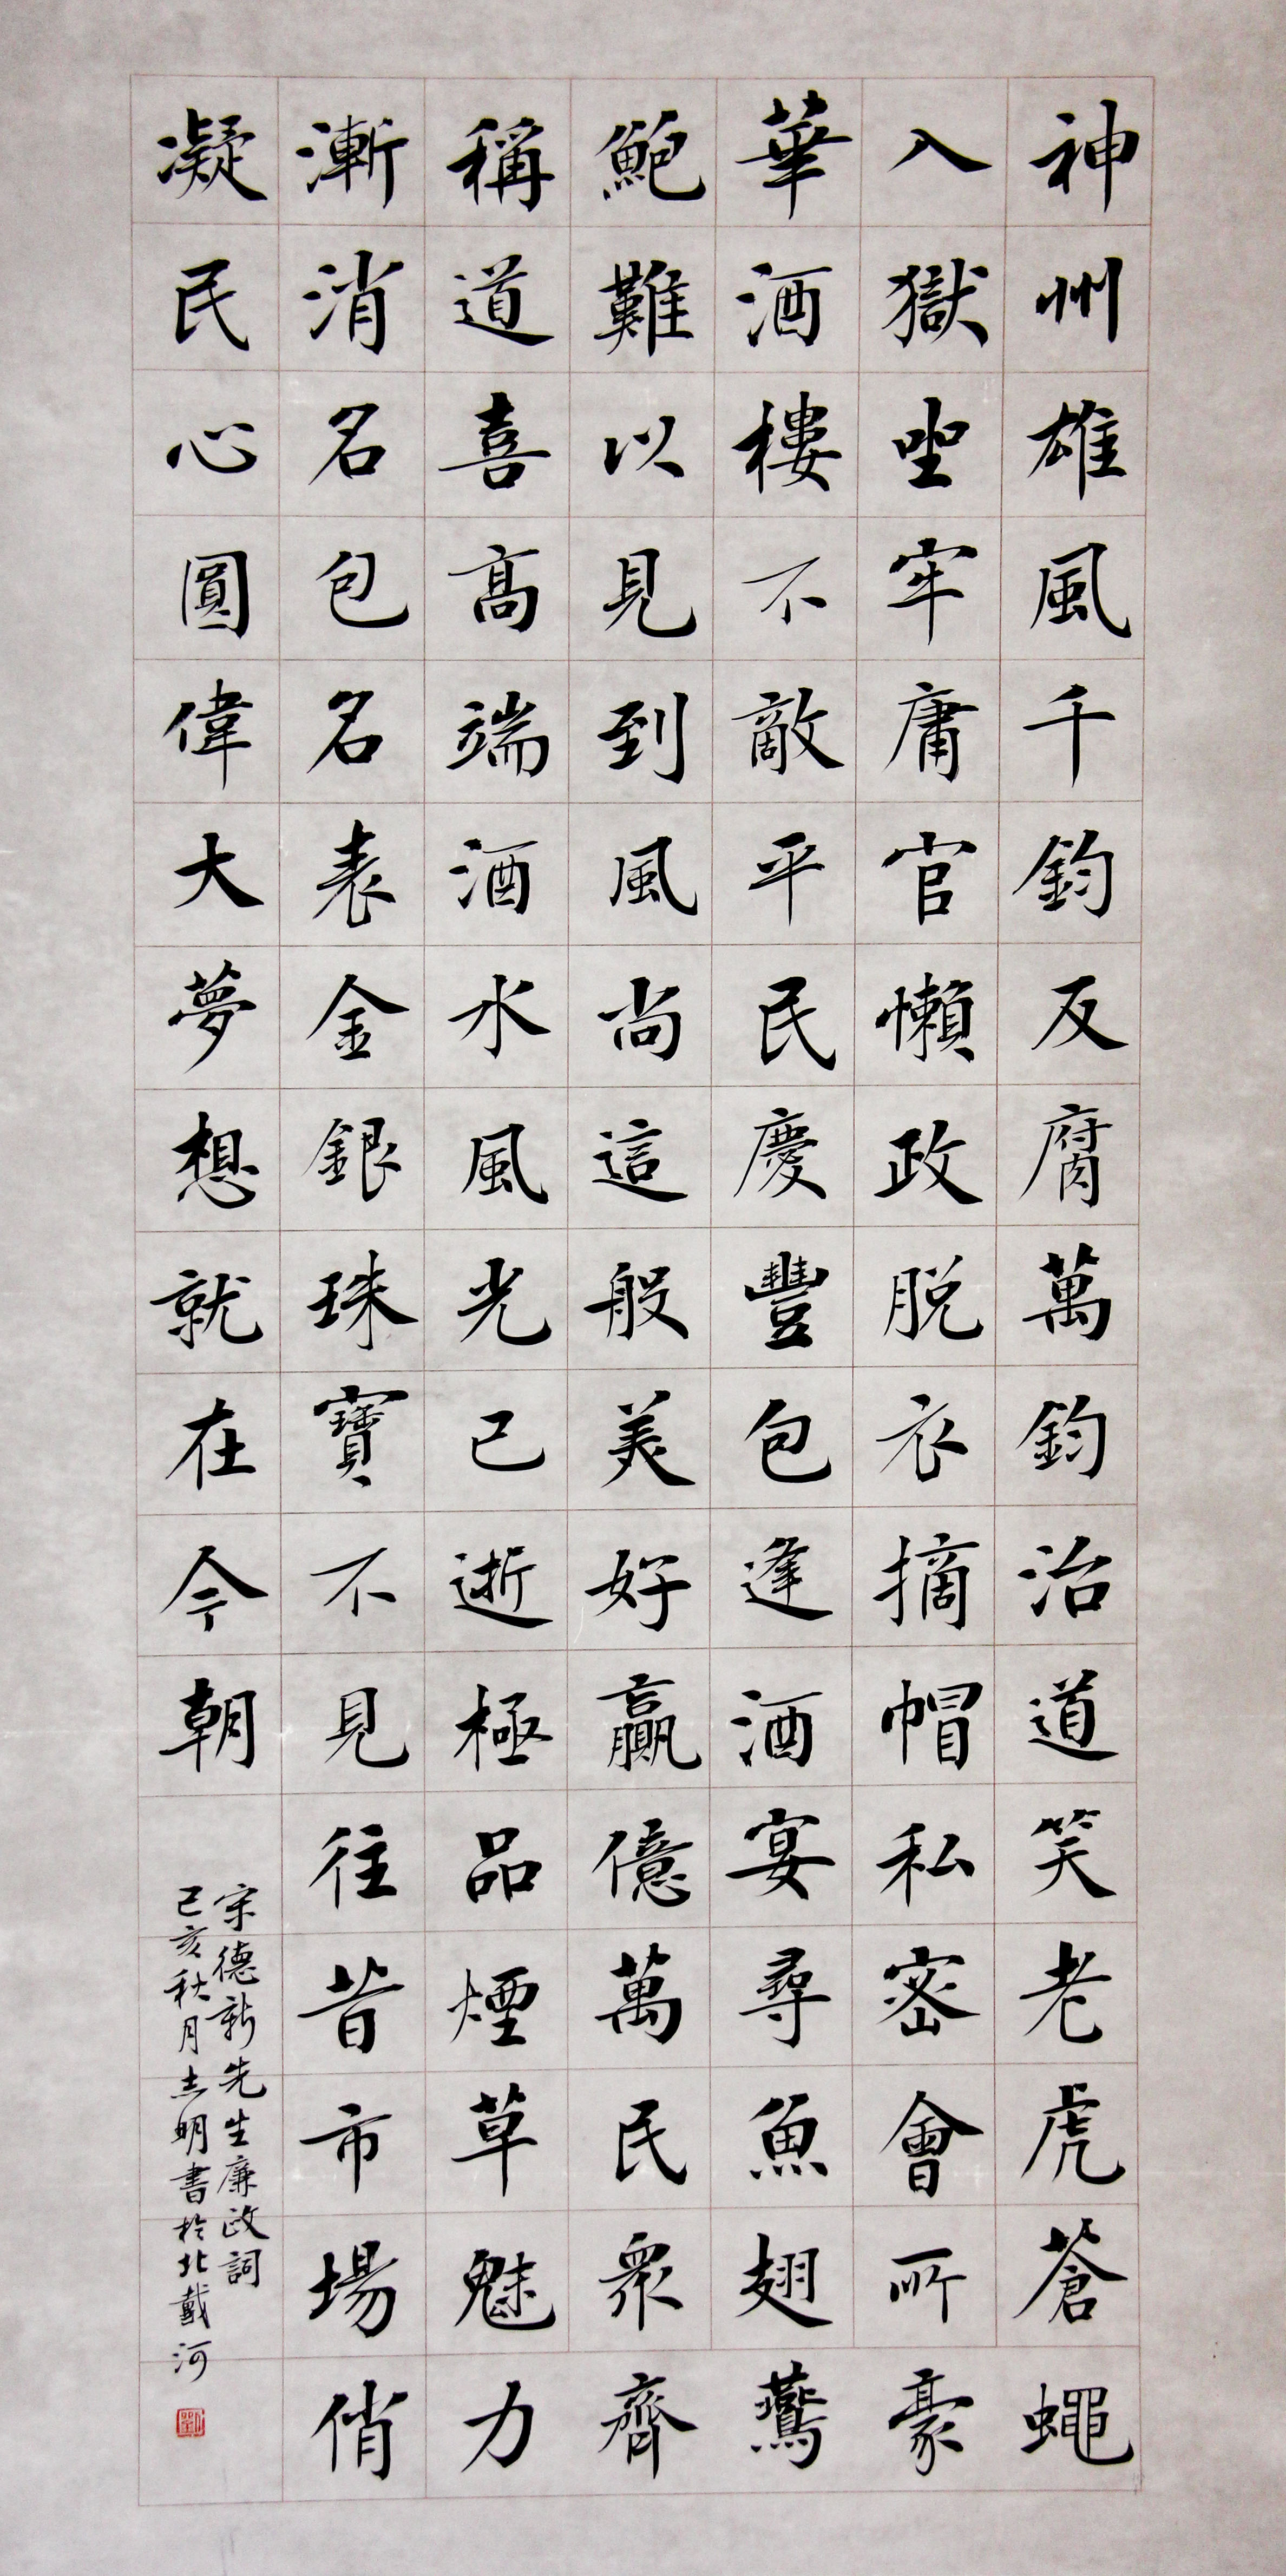 神州雄風千鈞反腐萬鈞治道笑老虎蒼蠅
入獄坐牢庸官懶政脫衣摘帽私密會所豪
華酒樓不敵平民慶豐包逢酒宴尋魚翅鷰
鮑難以見到風尚這般美好贏億萬民眾齊
稱道喜高端酒水風光已逝極品煙草魅力
漸消名包名表金銀珠寶不見往昔市場俏
凝民心圓偉大夢想就在今朝
宗德新先生廉政詞
己亥秋月志明書於北戴河
劉